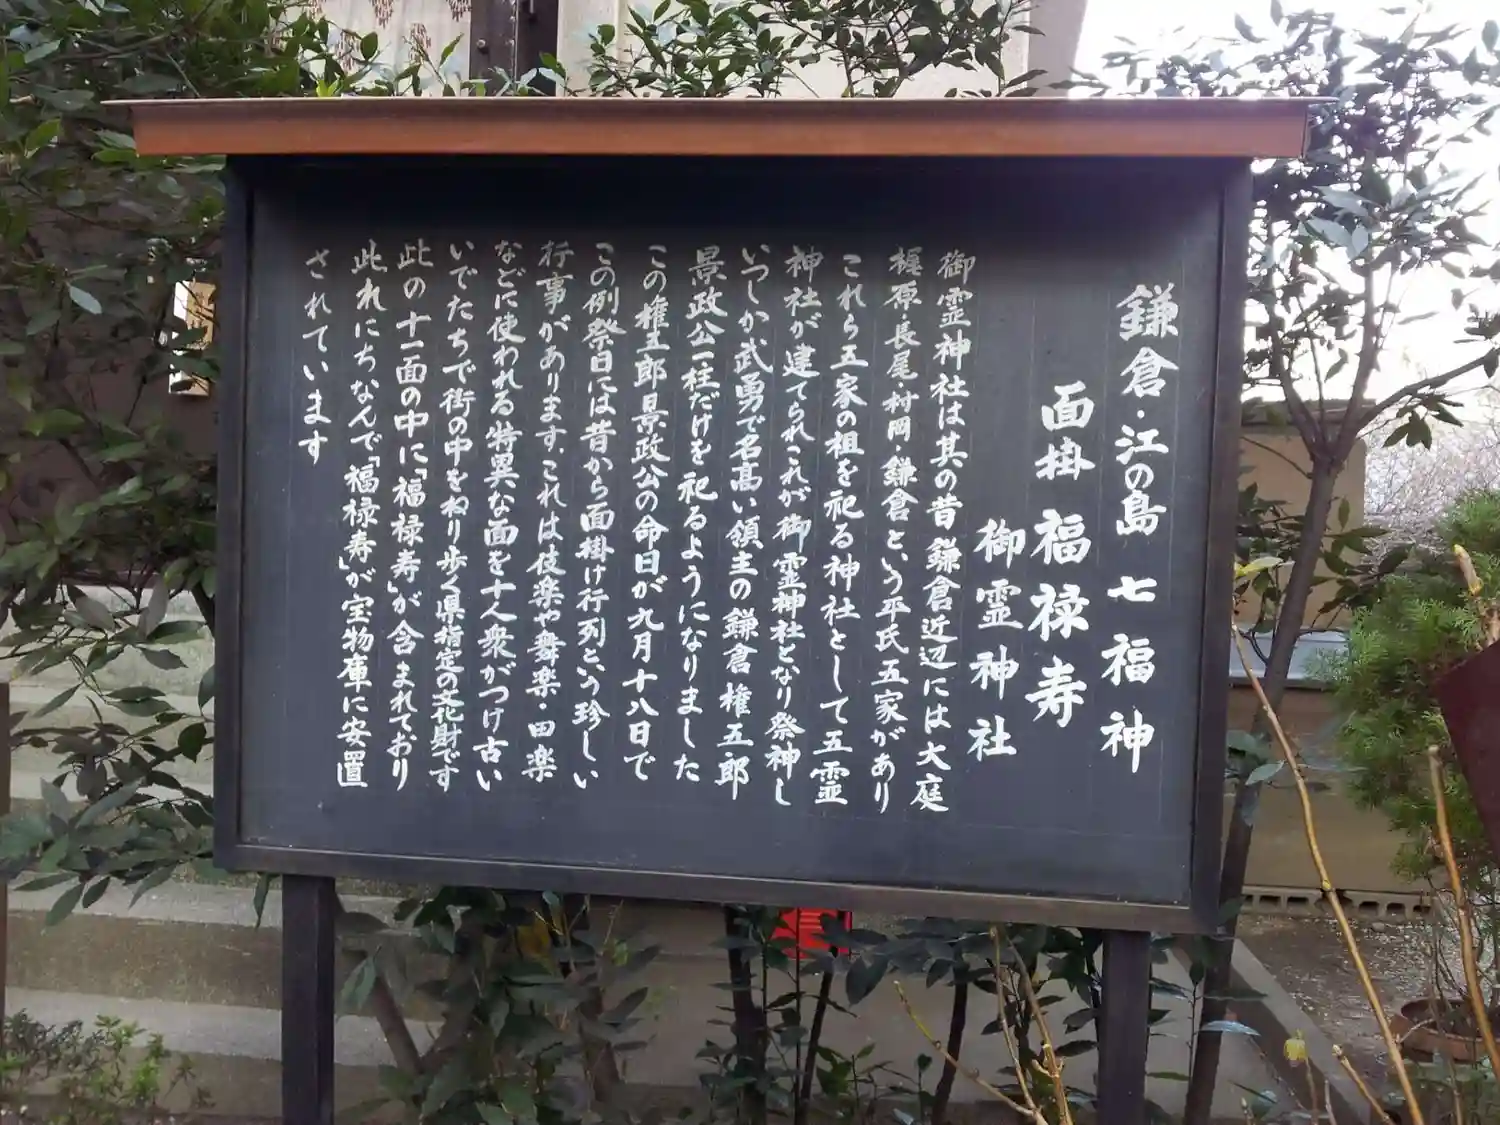 鎌倉・江の島 七福神
面掛 福禄寿
御霊神社
御霊神社は其の昔鎌倉近辺には大庭
梶原・長尾・村岡・鎌倉という平氏五家があり
これら五家の祖を祀る神社として五霊
神社が建てられこれが御霊神社となり祭神し
いつしか武勇で名高い領主の鎌倉権五郎
景政公一柱だけを祀るようになりました
この権五郎景政公の命日が九月十八日で
この例祭日には昔から面掛け行列という珍しい
行事があります.これは伎楽や舞楽・田楽
などに使われる特異な面を十人衆がつけ古い
いでたちで街の中をねり歩く県指定の文化財です
此の十一面の中に「福禄寿」が含まれており
此れにちなんで「福禄寿」が宝物庫に安置
されています